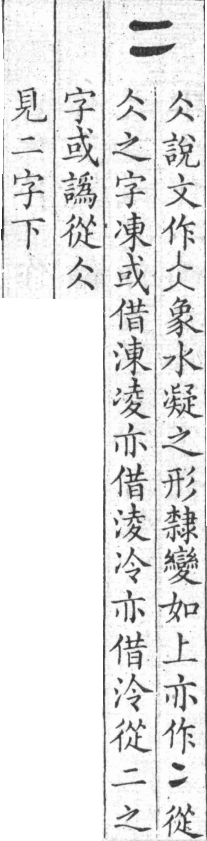 二
仌說文作仌象水凝之形隸變如上亦作冫從
仌之字凍或借涷凌亦借淩冷亦借泠從二之
字或譌從仌
見二字下